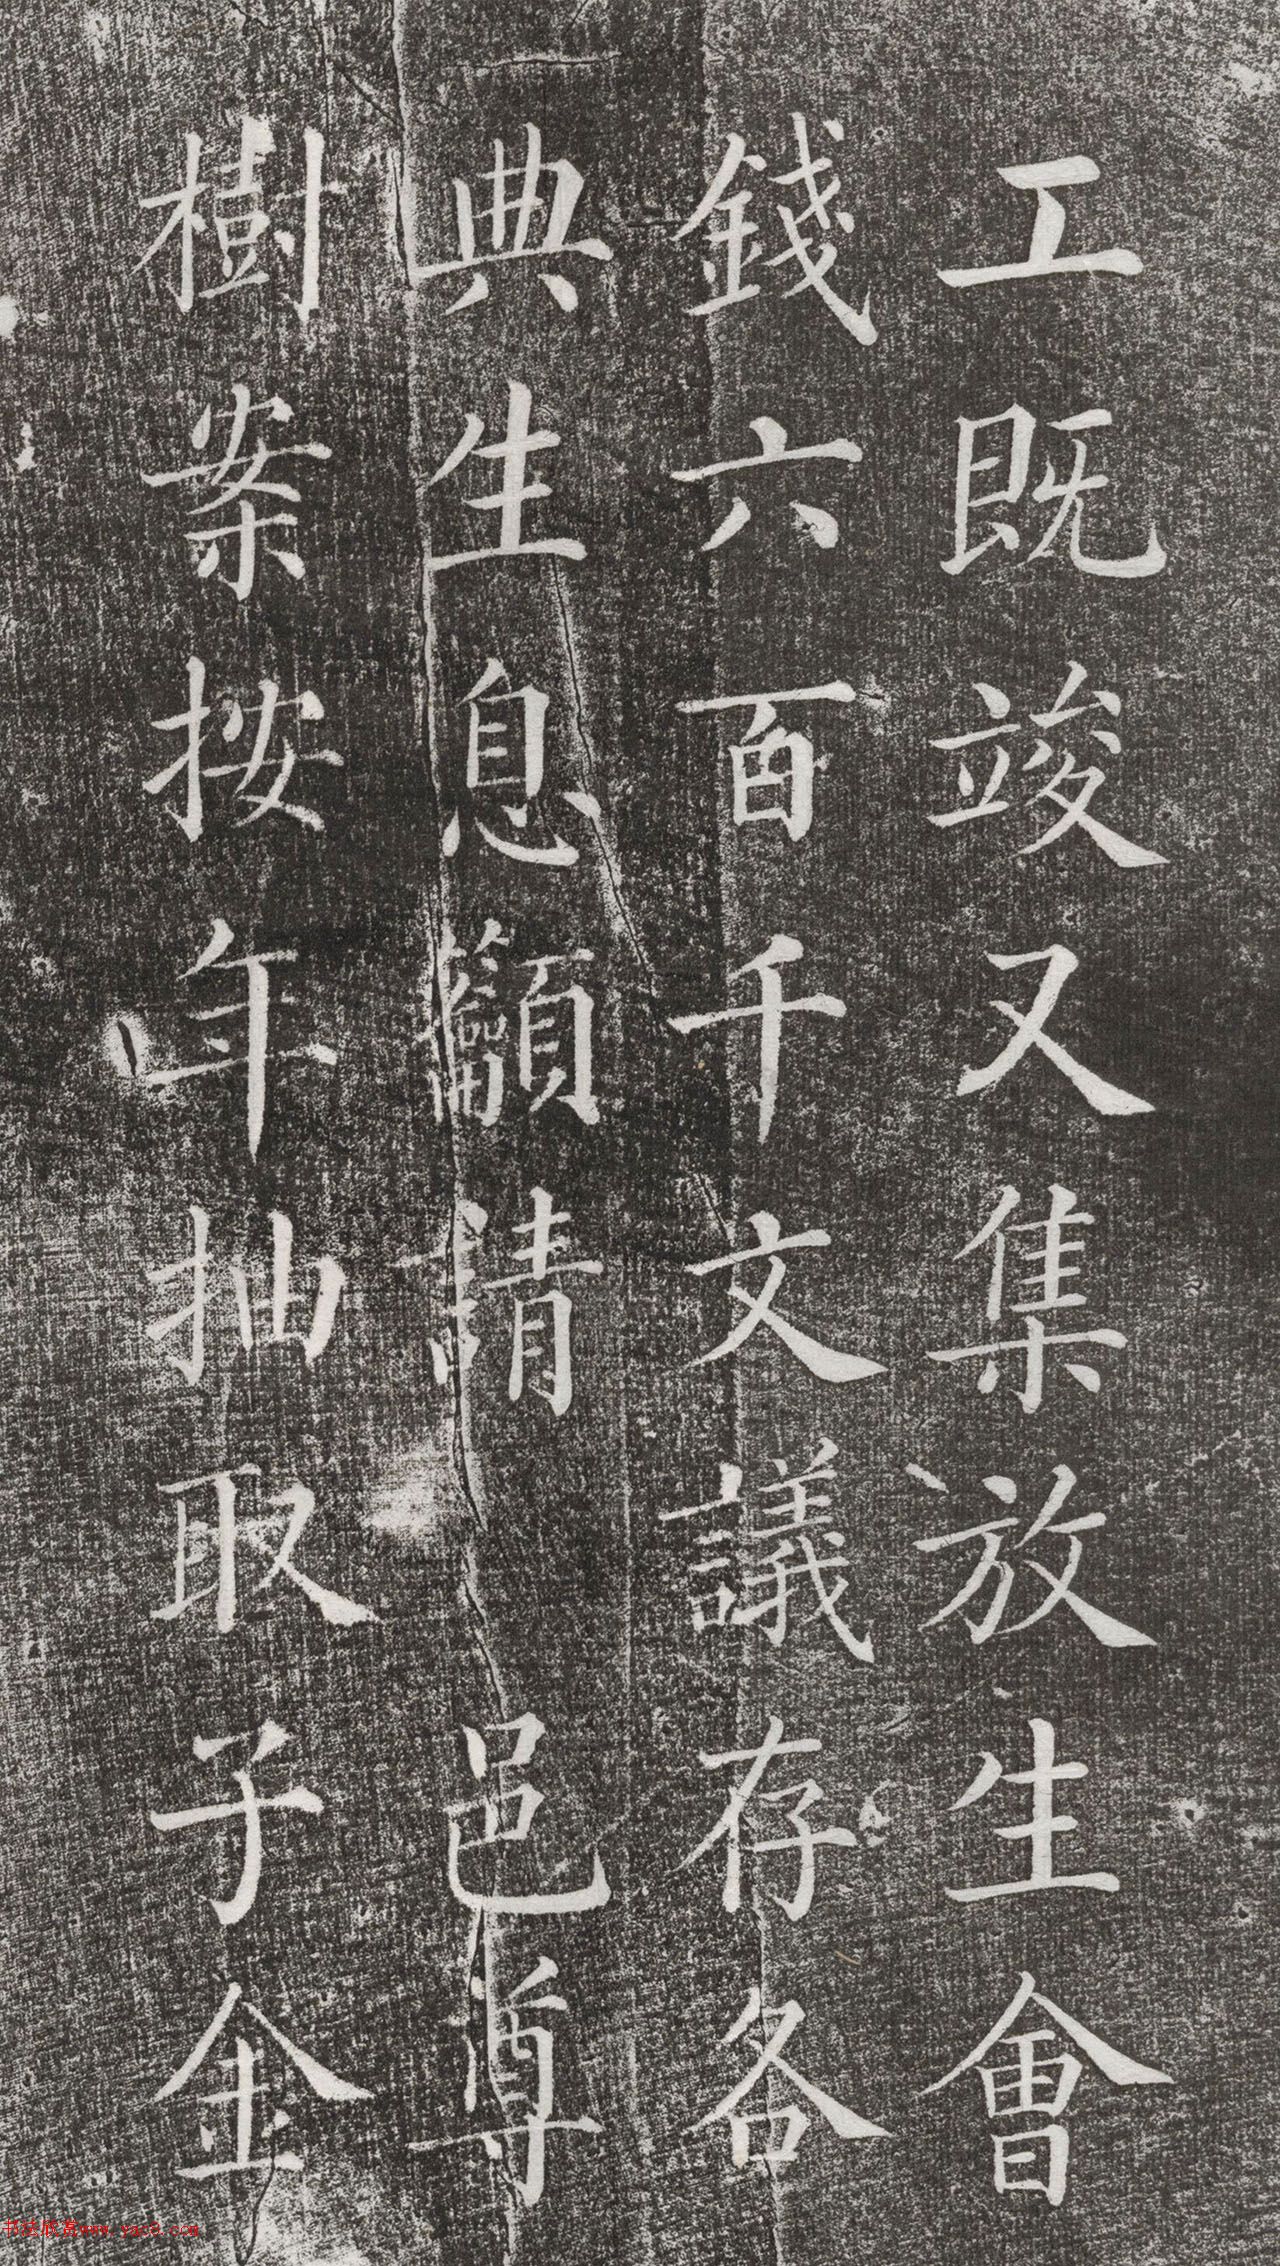 工既竣又集放生會
錢六百千文議存各
典生息籲請邑尊
樹案按年抽取子金
书法欣赏www.yac8.com